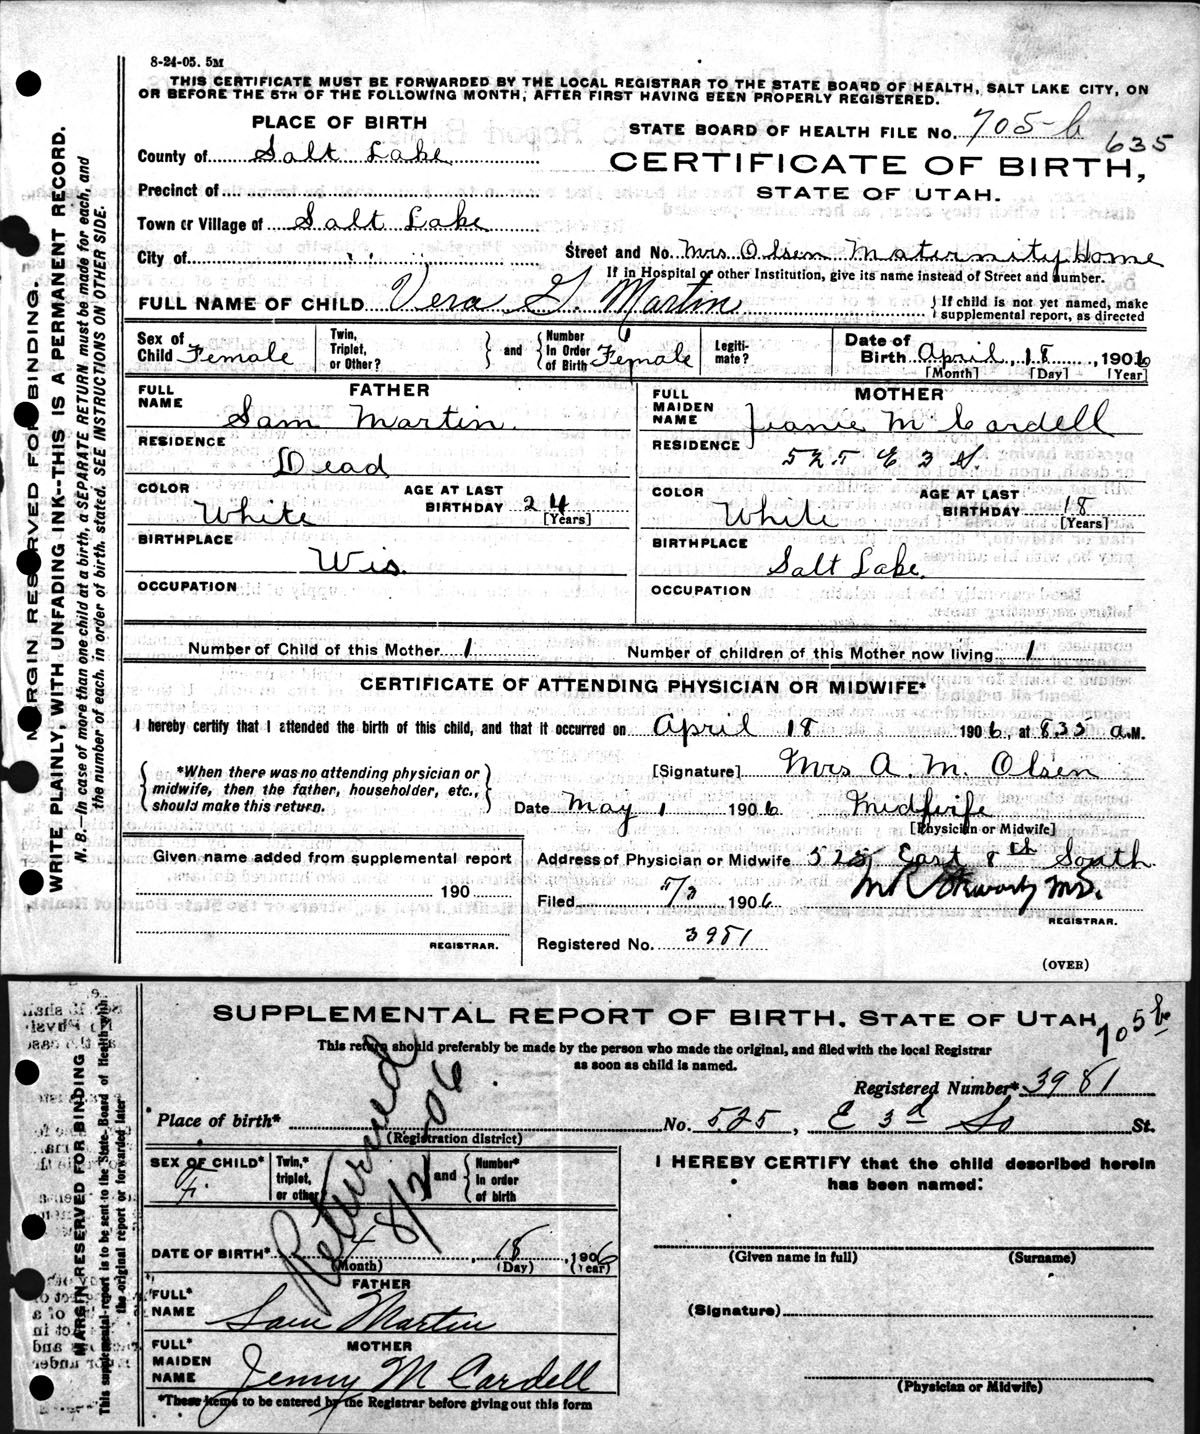 8-24-05. 5M
THIS CERTIFICATE MUST BE FORWARDED BY THE LOCAL REGISTRAR TO THE STATE BOARD OF HEALTH, SALT LAKE CITY, ON
OR BEFORE THE 5TH OF THE FOLLOWING MONTH, AFTER FIRST HAVING BEEN PROPERLY REGISTERED.
PLACE OF BIRTH
STATE BOARD OF HEALTH FILE NO. 705-b 635
County of Salt Lake
CERTIFICATE OF BIRTH,
Precinct of
STATE OF UTAH.
Town or Village of Salt Lake
City of " "
Street and No. Mrs Olsen Maternity Home
If in Hospital or other Institution, give its name instead of Street and number.
FULL NAME OF CHILD Vera G. Martin
If child is not yet named, make
supplemental report, as directed
Sex of Child Female Twin, Triplet, or Other? and Number In Order of Birth Female Legiti- mate? Date of Birth April 18, 1906
[Month] [Day] [Year]
FATHER MOTHER
FULL NAME Sam Martin. FULL MAIDEN NAME Jeanie McCardell
RESIDENCE Dead RESIDENCE 525 E 3 S.
COLOR White AGE AT LAST BIRTHDAY 24 [Years] COLOR White AGE AT LAST BIRTHDAY 18 [Years]
BIRTHPLACE Wis. BIRTHPLACE Salt Lake.
OCCUPATION OCCUPATION
Number of Child of this Mother 1 Number of children of this Mother now living 1
CERTIFICATE OF ATTENDING PHYSICIAN OR MIDWIFE*
I hereby certify that I attended the birth of this child, and that it occurred on April 18 1906, at 835 a.M.
*When there was no attending physician or
midwife, then the father, householder, etc.,
should make this return.
[Signature] Mrs A. M. Olsen
Date May 1 1906 Midwife
[Physician or Midwife]
Given name added from supplemental report
190
REGISTRAR.
Address of Physician or Midwife 525 East 8th South
Filed 5/3 1906
REGISTRAR.
Registered No. 3981
(OVER)
MARGIN RESERVED FOR BINDING.
WRITE PLAINLY, WITH UNFADING INK--THIS IS A PERMANENT RECORD.
N. B.--In case of more than one child at a birth, a SEPARATE RETURN must be made for each, and
the number of each, in order of birth, stated. SEE INSTRUCTIONS ON OTHER SIDE.
SUPPLEMENTAL REPORT OF BIRTH. STATE OF UTAH
705b
This return should preferably be made by the person who made the original, and filed with the local Registrar
as soon as child is named.
Registered Number* 3981
Place of birth* No. 525, E 3d So St.
(Registration district)
Returned
8/2/06
SEX OF CHILD* F. Twin,* triplet, or other and Number* in order of birth
I HEREBY CERTIFY that the child described herein
has been named:
DATE OF BIRTH* 4 18, 1906
(Month) (Day) (Year)
(Given name in full) (Surname)
FATHER
FULL* NAME Sam Martin
(Signature)
MOTHER
FULL* MAIDEN NAME Jenny McCardell
(Physician or Midwife)
*These items to be entered by the Registrar before giving out this form
MARGIN RESERVED FOR BINDING
This supplemental report is to be sent to the State Board of Health with
the original report or forwarded later